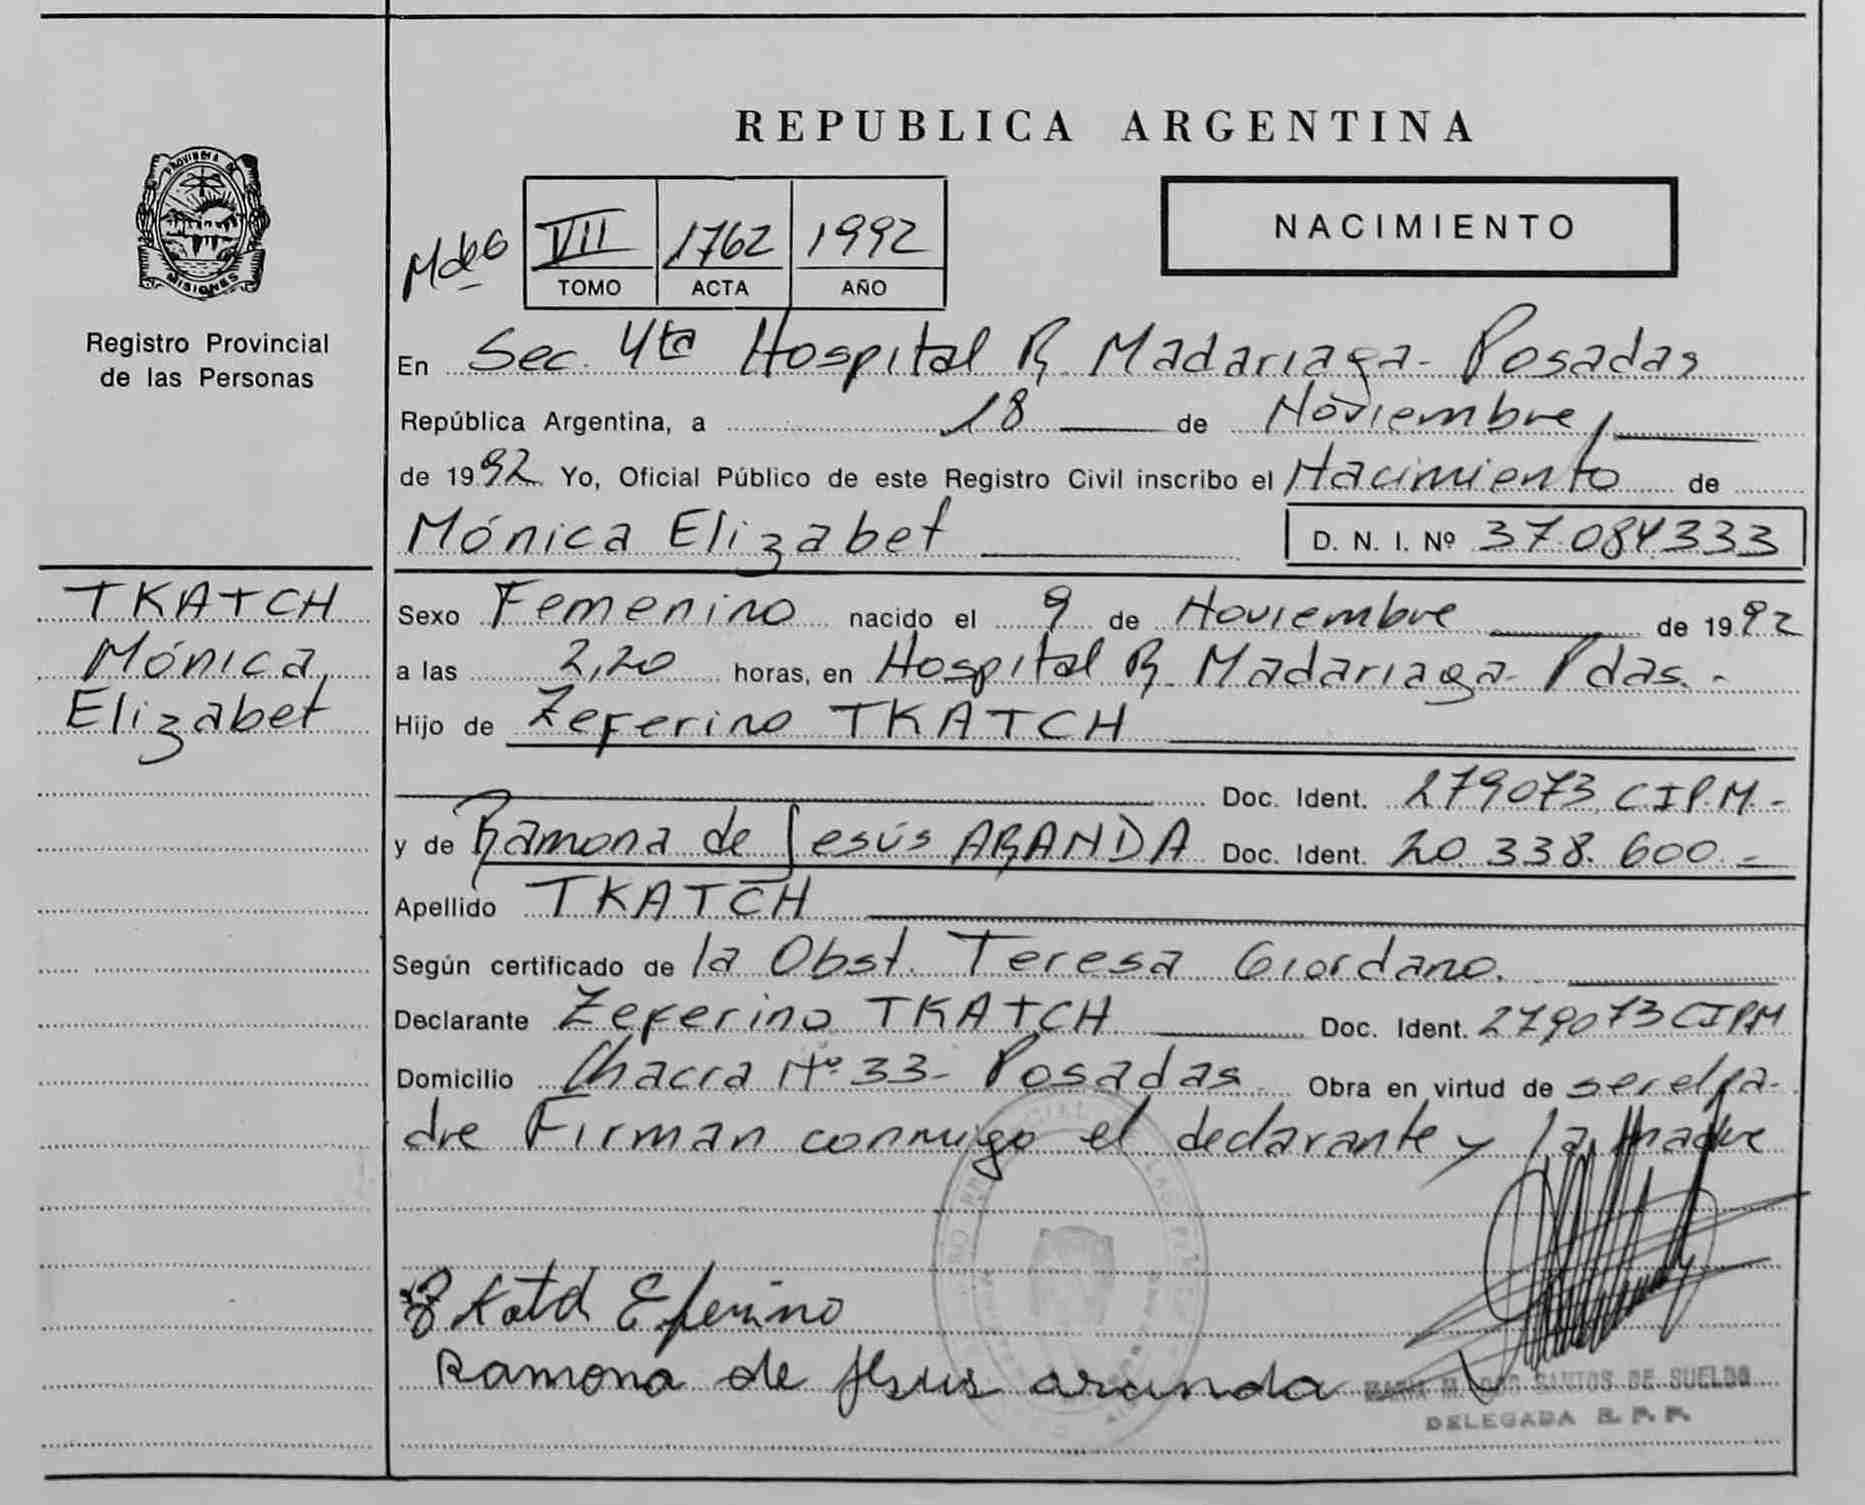 REPUBLICA ARGENTINA
PROVINCIA DE
MISIONES
Registro Provincial
de las Personas
VII 1762 1992
TOMO ACTA AÑO
NACIMIENTO
En Sec. 4ta Hospital R. Madariaga - Posadas
República Argentina, a 18 de Noviembre
de 1992 Yo, Oficial Público de este Registro Civil inscribo el Nacimiento de
Mónica Elizabet D. N. I. Nº 37.084.333
TKATCH
Mónica
Elizabet
Sexo Femenino nacido el 9 de Noviembre de 1992
a las 2,20 horas, en Hospital R. Madariaga - Pdas. -
Hijo de Zeferino TKATCH
Doc. Ident. 279073 CIPM. -
y de Ramona de Jesús ARANDA Doc. Ident. 20.338.600. -
Apellido TKATCH
Según certificado de la Obst. Teresa Giordano.
Declarante Zeferino TKATCH Doc. Ident. 279073 CIPM
Domicilio Chacra Nº 33 - Posadas Obra en virtud de ser el pa-
dre Firman conmigo el declarante y la madre
Ramona de Jesus aranda
MARIA M. DOS SANTOS DE SUELDO
DELEGADA R. P. P.